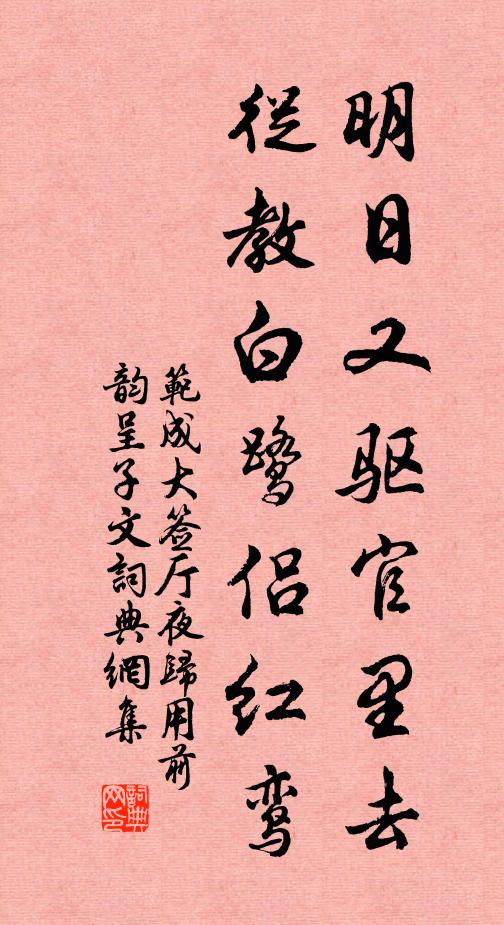 明日又驱官里去
従教白鹭侣红鸾
範成大签厅夜歸用前
韵呈子文詞典網集
詞典網印